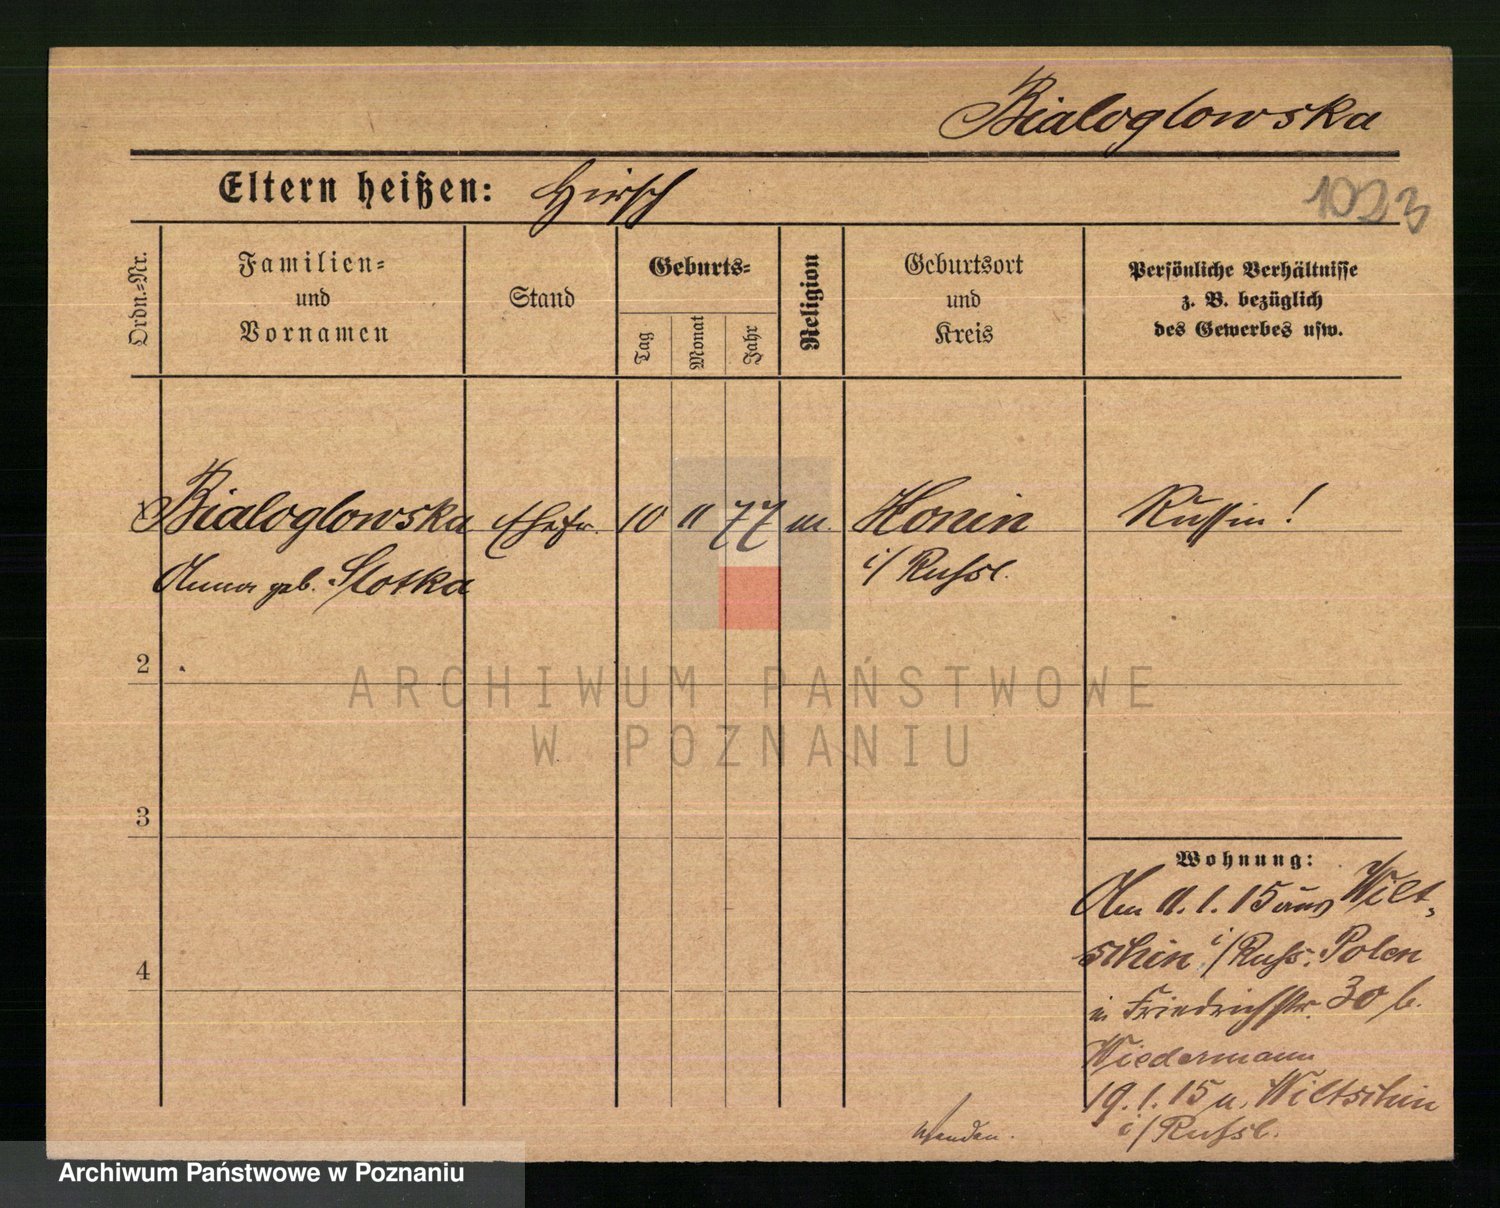 Bialoglowska
Eltern heißen: Hirsch
Ordn.-Nr.
Familien-
und
Vornamen
Stand
Geburts-
Tag
Monat
Jahr
Religion
Geburtsort
und
Kreis
Persönliche Verhältnisse
z. B. bezüglich
des Gewerbes usw.
1 Bialoglowska Ehefr. 10 11 77 m. Konin Russin!
Anna geb. Slotka i/Russl.
2
3
4
Wohnung:
Am 11.1.15 aus Wilt-
schin i/Russ. Polen
in Friedrichstr. 30 b.
Wiedermann
19.1.15 n. Wiltschin
i/Russl.
wenden.
ARCHIWUM PAŃSTWOWE
W POZNANIU
Archiwum Państwowe w Poznaniu